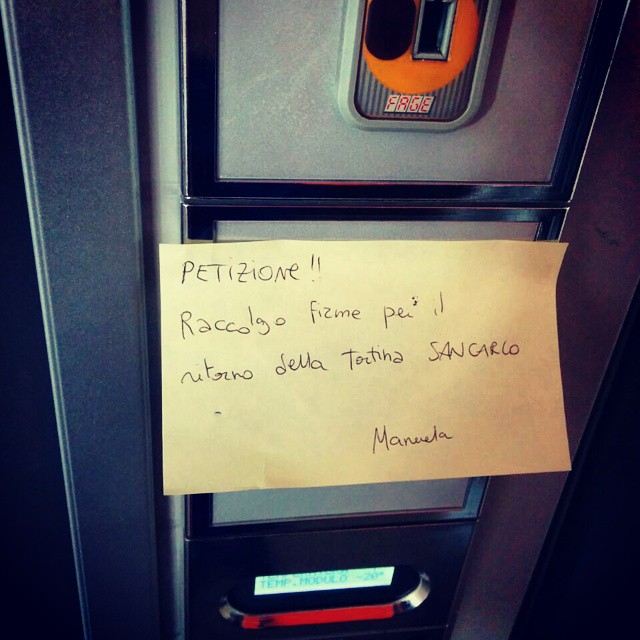 FAGE
PETIZIONE!!
Raccolgo firme per il
ritorno della tortina SANCARLO
Manuela
TEMP.MODULO -20°